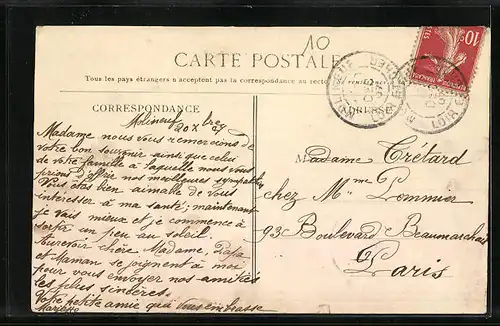 10
CARTE POSTALE
Tous les pays étrangers n'acceptent pas la correspondance au recto
CORRESPONDANCE
ADRESSE
Molineuf
20 Xbre 07
Madame nous vous remercions de
votre bon souvenir ainsi que celui
de votre famille à laquelle nous vous
prions d'offrir nos meilleures sympathies
Vous êtes bien aimable de vous
intéresser à ma santé; maintenant
je vais mieux et je commence à
sortir un peu au soleil.
Au revoir chère Madame, Papa
et Maman se joignent à moi
pour vous envoyer nos amitiés
les plus sincères.
Votre petite amie qui vous embrasse
Madame Trétard
chez Mme P. Lemmier
93 Boulevard Beaumarchais
Paris
10c
POSTES
LOIR-ET-CHER